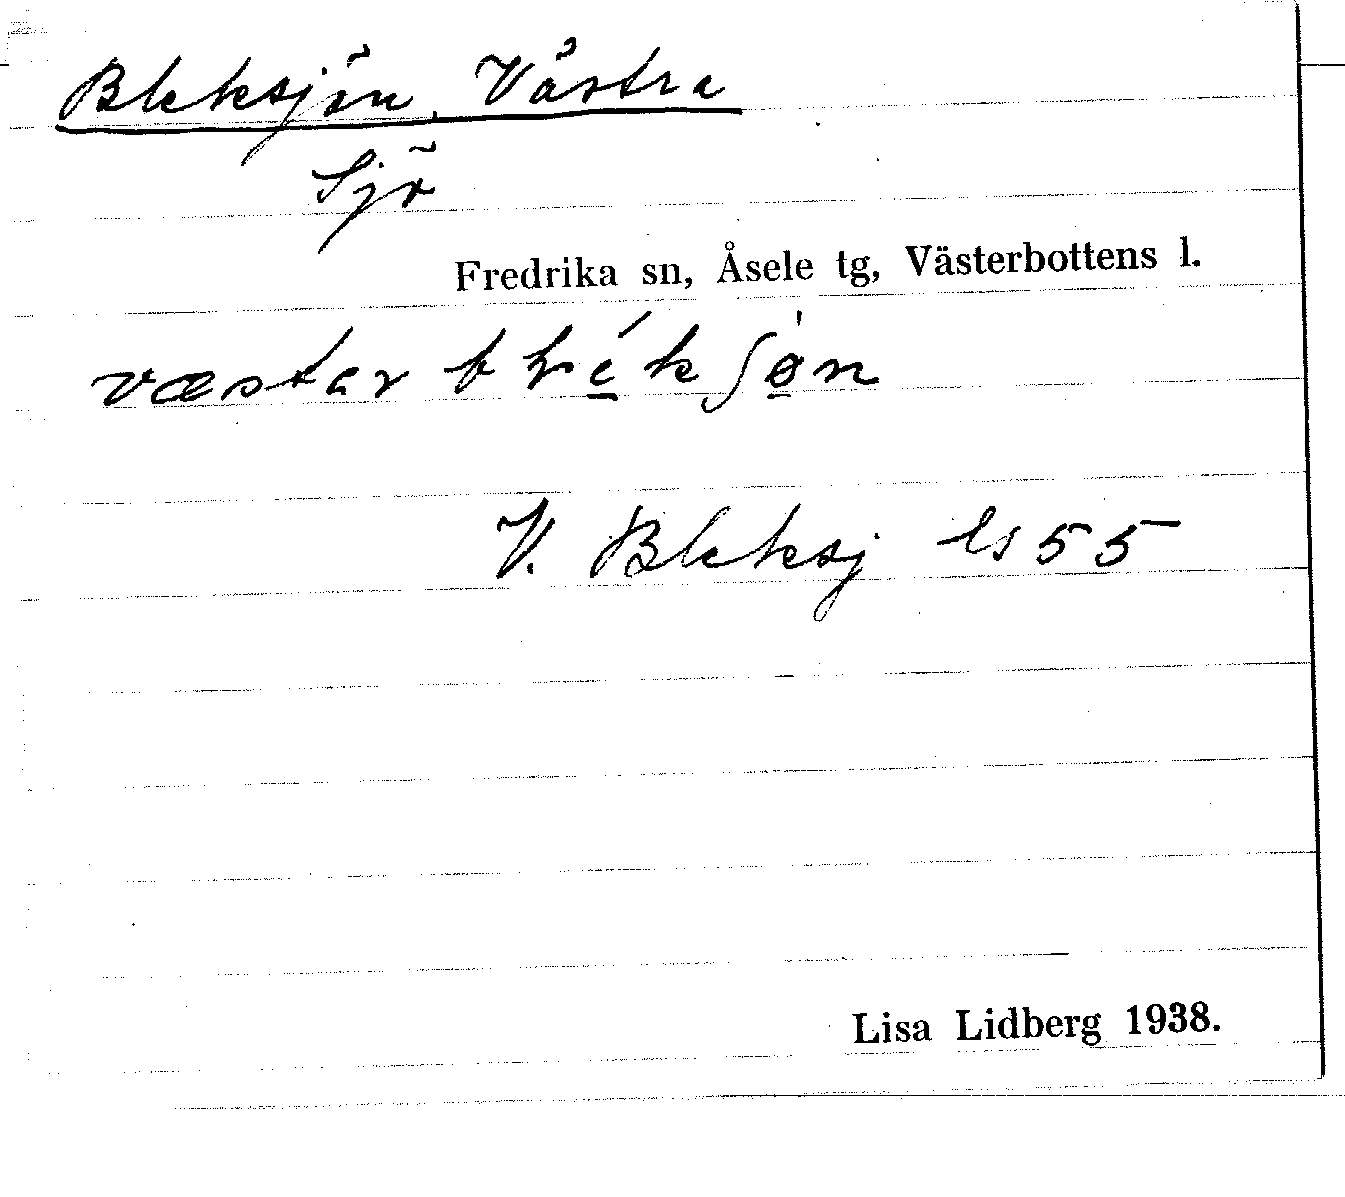 Bleksjön, Västra
Sjö
Fredrika sn, Åsele tg, Västerbottens l.
væstar
V. Bleksj ls 55
Lisa Lidberg 1938.